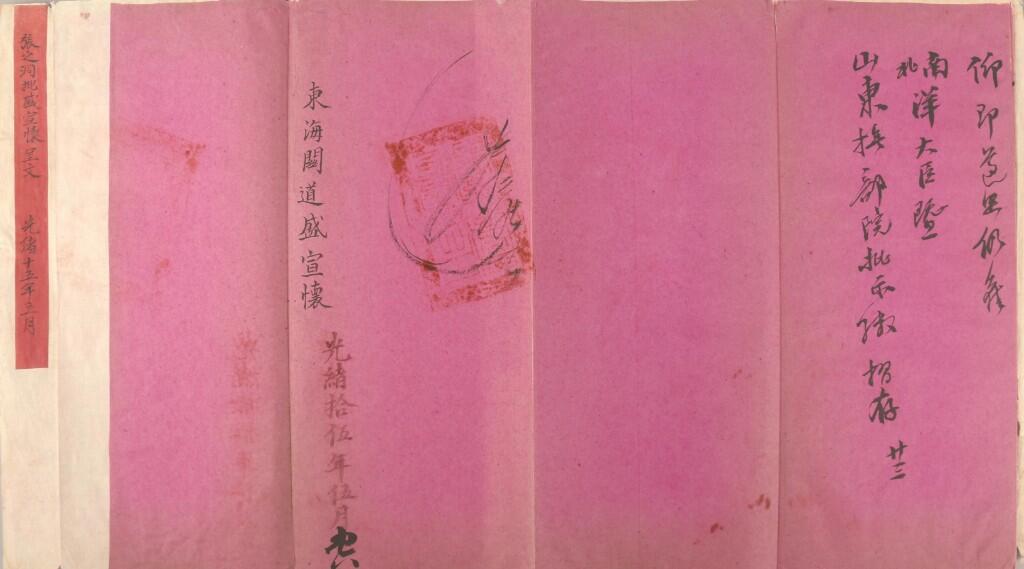 仰即遵照仍候
南北洋大臣暨
山東撫部院批示繳摺存 廿三
光緒拾伍年伍月
東海關道盛宣懷
張之洞批盛宣懷呈文 光緒十五年五月